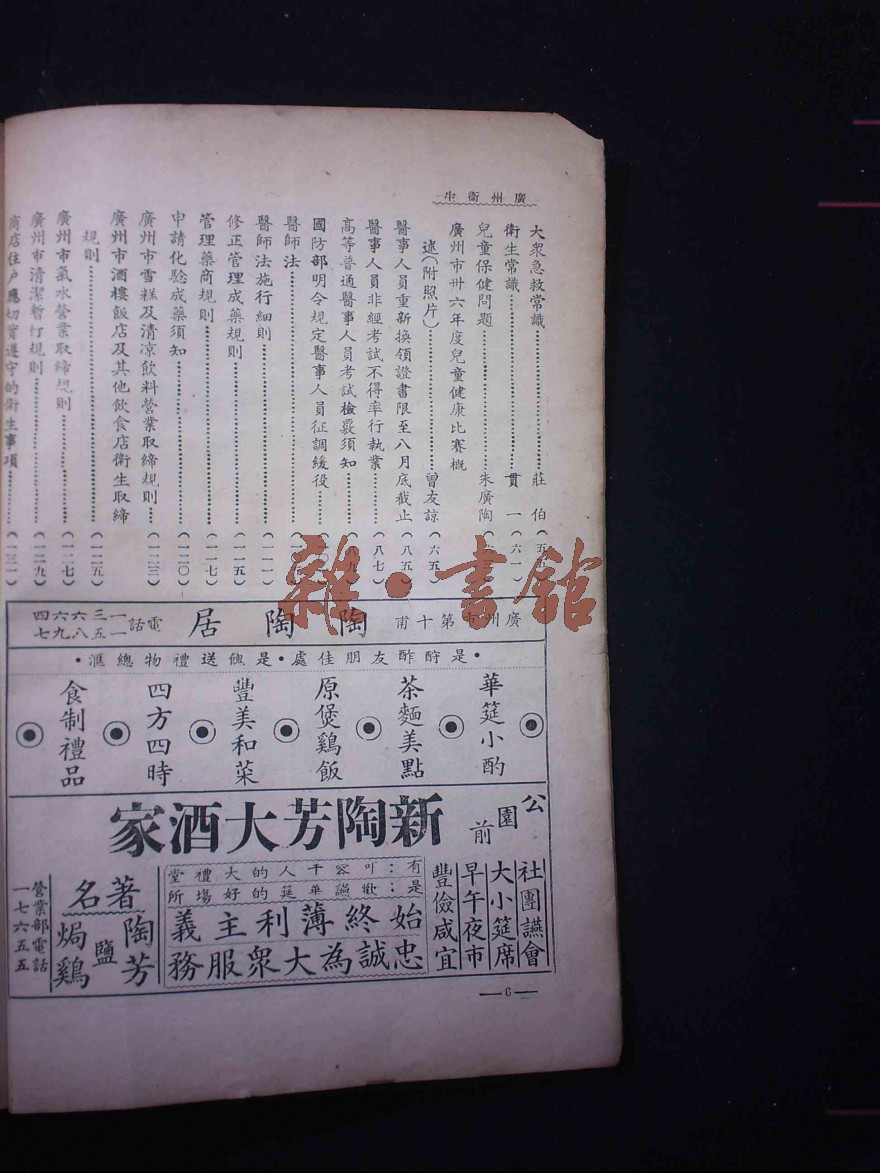 廣州衞生
大衆急救常識……莊伯(五五)
衞生常識……貫一(六一)
兒童保健問題……朱廣陶(
廣州市卅六年度兒童健康比賽槪
述(附照片)……曾友諒(六五)
醫事人員重新換領證書限至八月底截止(八五)
醫事人員非經考試不得率行執業……(八七)
高等普通醫事人員考試檢覈須知……(八九)
國防部明令規定醫事人員征調緩役……
醫師法……
醫師法施行細則……(一一一)
修正管理成藥規則……(一一五)
管理藥商規則……(一一七)
申請化驗成藥須知……(一二〇)
廣州市雪糕及清凉飲料營業取締規則……(一二三)
廣州市酒樓飯店及其他飲食店衞生取締
規則……(一二五)
廣州市氣水營業取締規則……(一二七)
廣州市清潔暫行規則……(一二九)
商店住戶應切實遵守的衞生事項……(一三一)
廣州市第十甫
陶陶居
電話一一三六六四
一五八九七
•是酧酢友朋佳處•是餽送禮物總滙•
華筵小酌
茶麵美點
原煲鷄飯
豐美和菜
四方四時
食制禮品
公園前
新陶芳大酒家
社團讌會
大小筵席
早午夜市
豐儉咸宜
有:可容千人的大禮堂
是:歡讌華筵的好塲所
始終薄利主義
忠誠為大衆服務
著名
陶芳
鹽
焗鷄
營業部電話
一七六五五
—6—
雜·書館